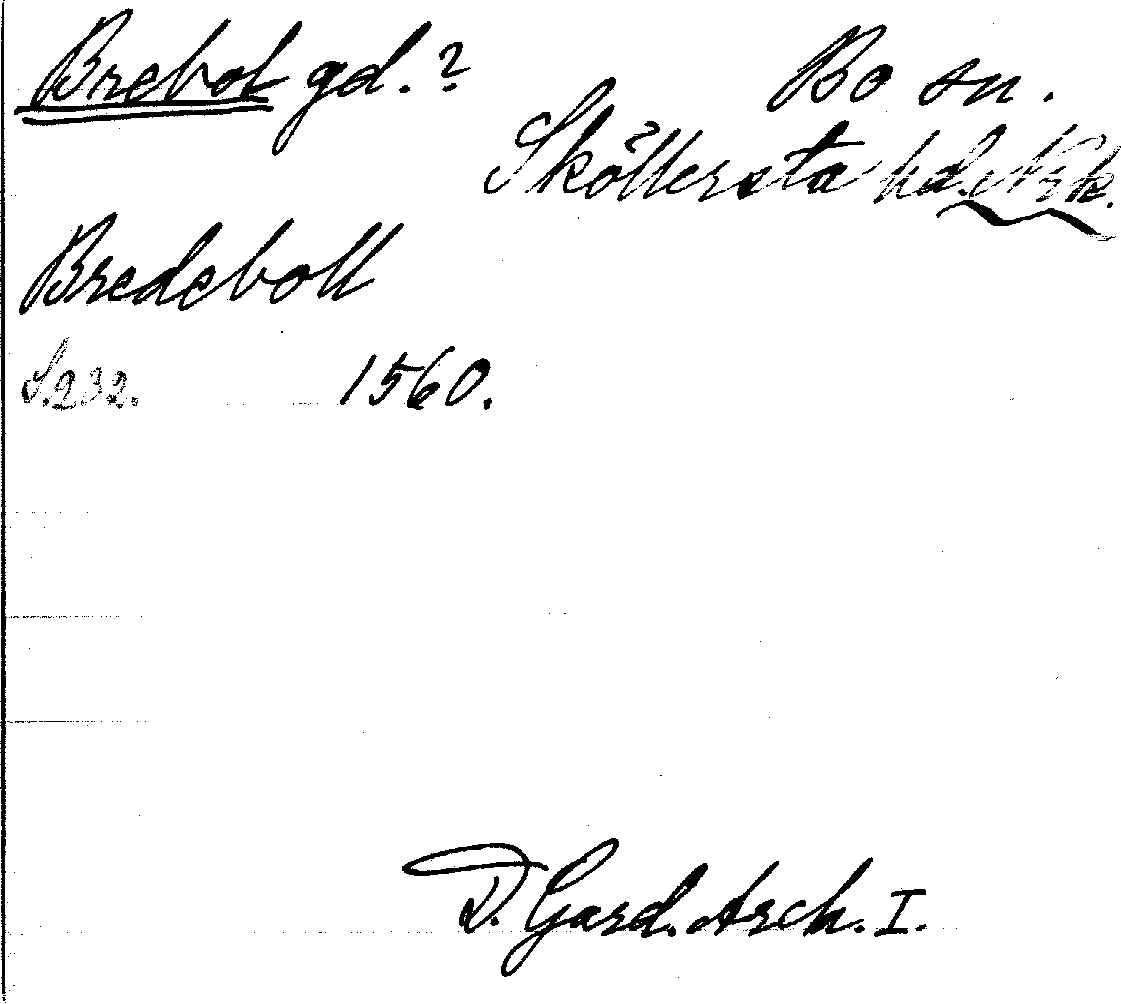 Brebol gd.?
Bo sn.
Sköllersta hd. Nrk.
Bredeboll
S. 232. 1560.
D. Gard. Arch. I.